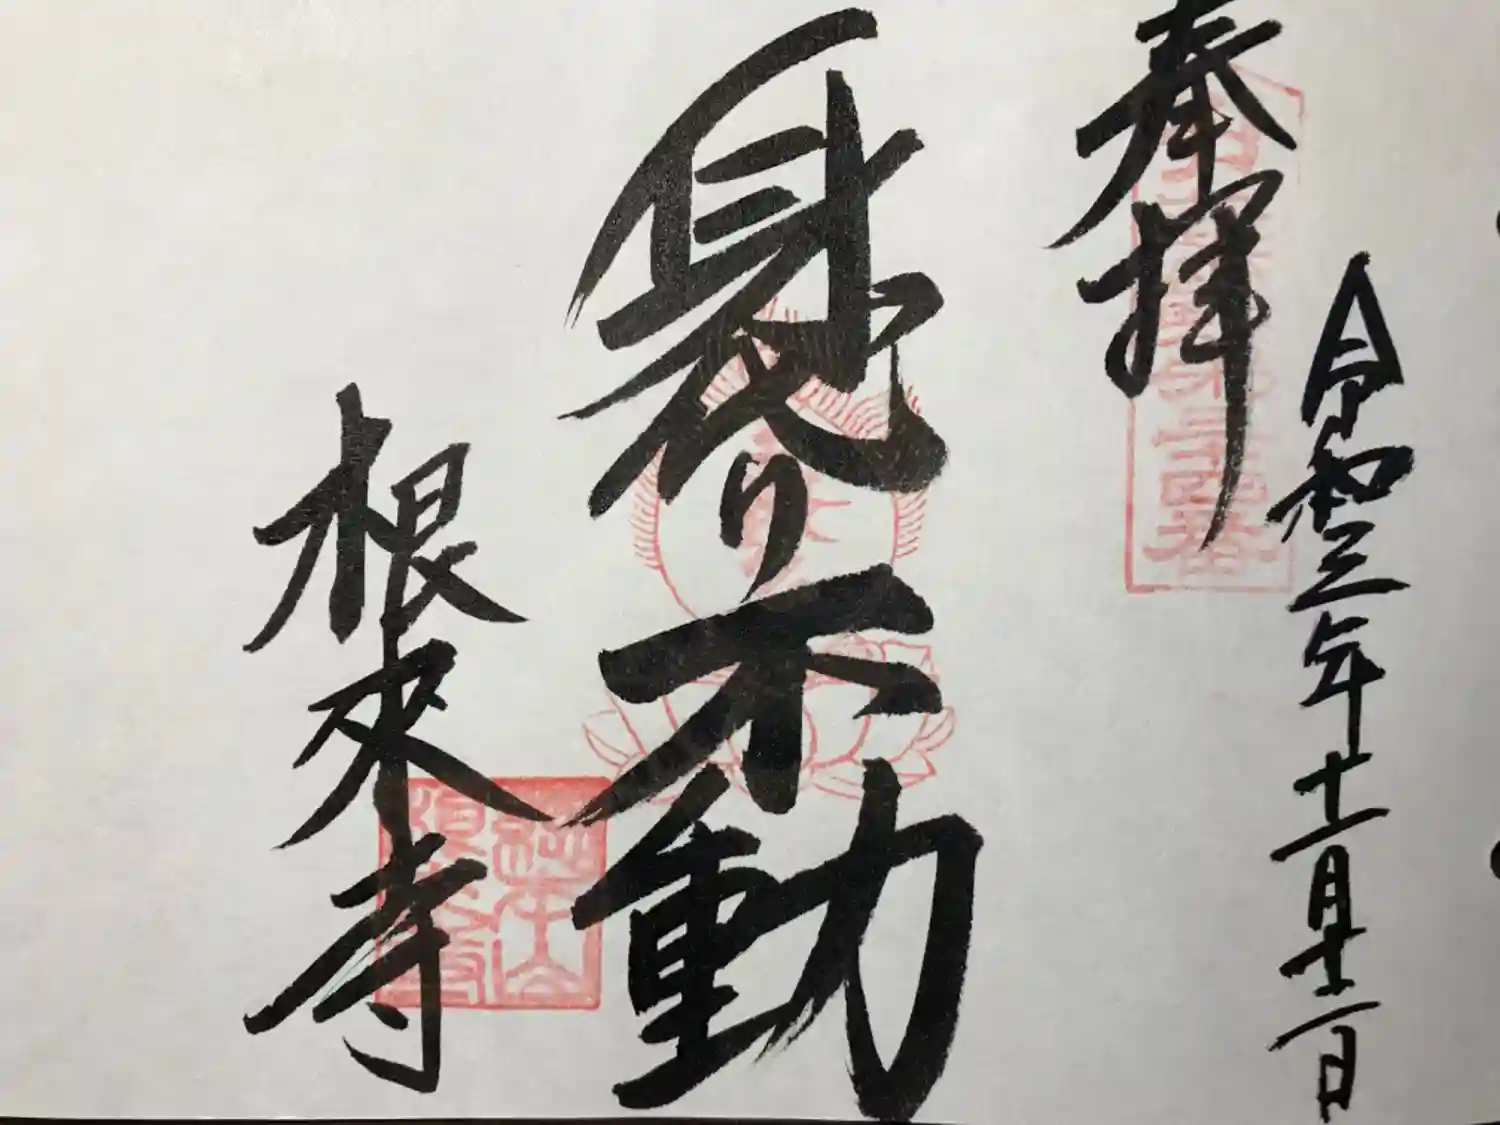 奉拝
令和三年十一月十二日
身代り不動
根來寺